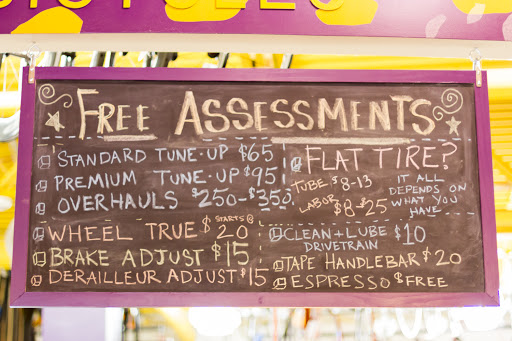 FREE ASSESSMENTS
STANDARD TUNE-UP $65
PREMIUM TUNE-UP $95
OVERHAULS $250-$350
FLAT TIRE?
TUBE $8-13
LABOR $8-$25
IT ALL
DEPENDS ON
WHAT YOU
HAVE
WHEEL TRUE STARTS @ $20
BRAKE ADJUST $15
DERAILLEUR ADJUST $15
CLEAN+LUBE $10
DRIVETRAIN
TAPE HANDLEBAR $20
ESPRESSO $FREE